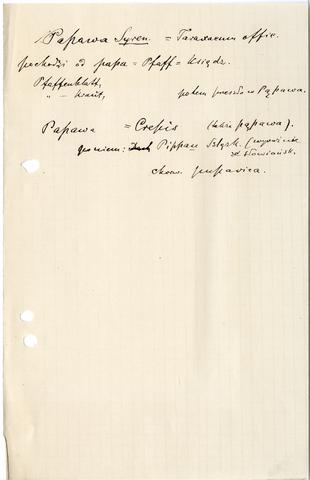 Papawa Syren. = Taraxacum offic.
pochodzi od papa = Pfaff = Ksiądz.
Pfaffenblatt,
„ – kraut, potem przeszło w Pąpawa.
Papawa = Crepis (także pąpawa).
po niem: Pippau Szląsk. (wzięwszy
ze słowiańsk.
chorw. pupavica.